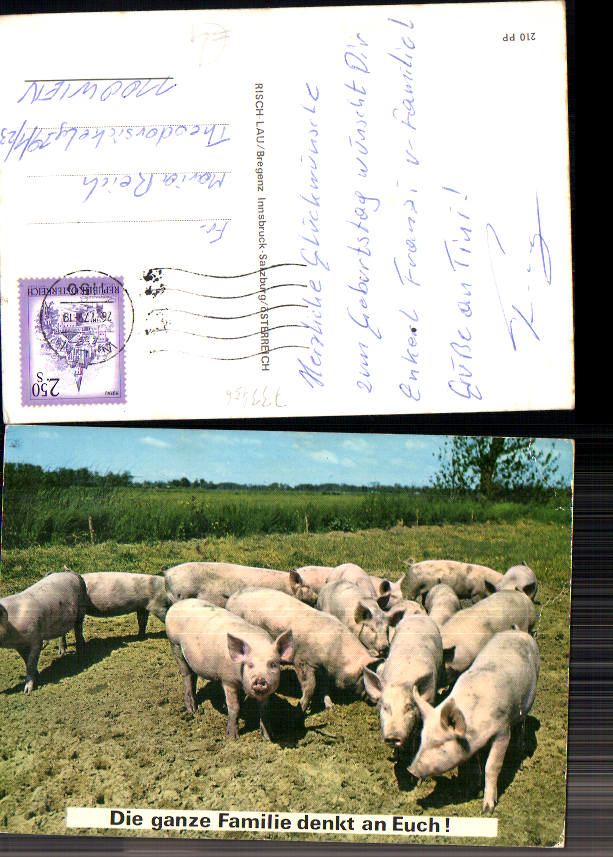 210 PP
Herzliche Glückwünsche
zum Geburtstag wünscht Dir
Enkerl Franzi u. Familie
Grüße an Tini!
RISCH-LAU/Bregenz Innsbruck-Salzburg/ÖSTERREICH
Fr.
Maria Reich
1100 WIEN
REPUBLIK ÖSTERREICH
2.50
S
Die ganze Familie denkt an Euch!